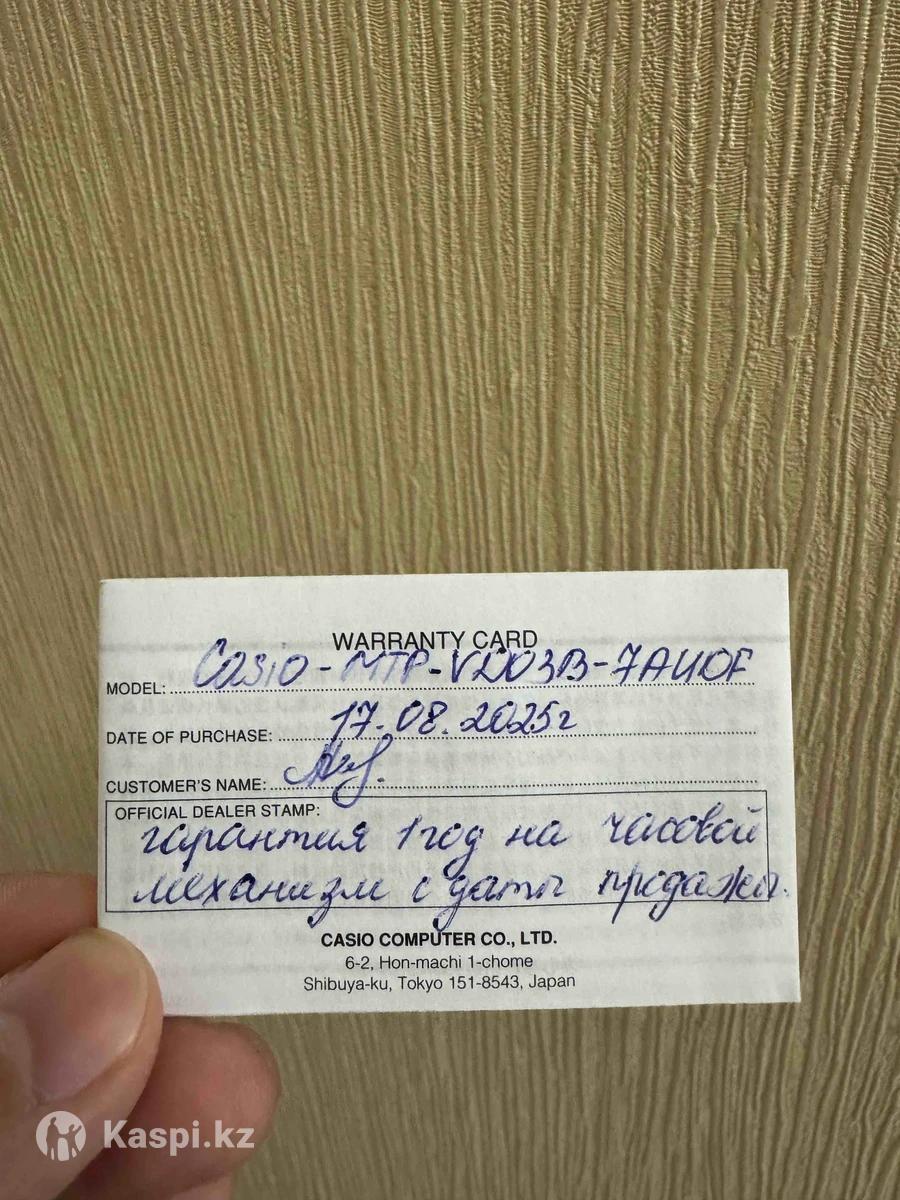 WARRANTY CARD
MODEL: Casio-MTP-VD03B-7AUDF
DATE OF PURCHASE: 17.08.2025г
CUSTOMER'S NAME:
OFFICIAL DEALER STAMP:
гарантия 1 год на часовой
механизм с даты продажи.
CASIO COMPUTER CO., LTD.
6-2, Hon-machi 1-chome
Shibuya-ku, Tokyo 151-8543, Japan
Kaspi.kz